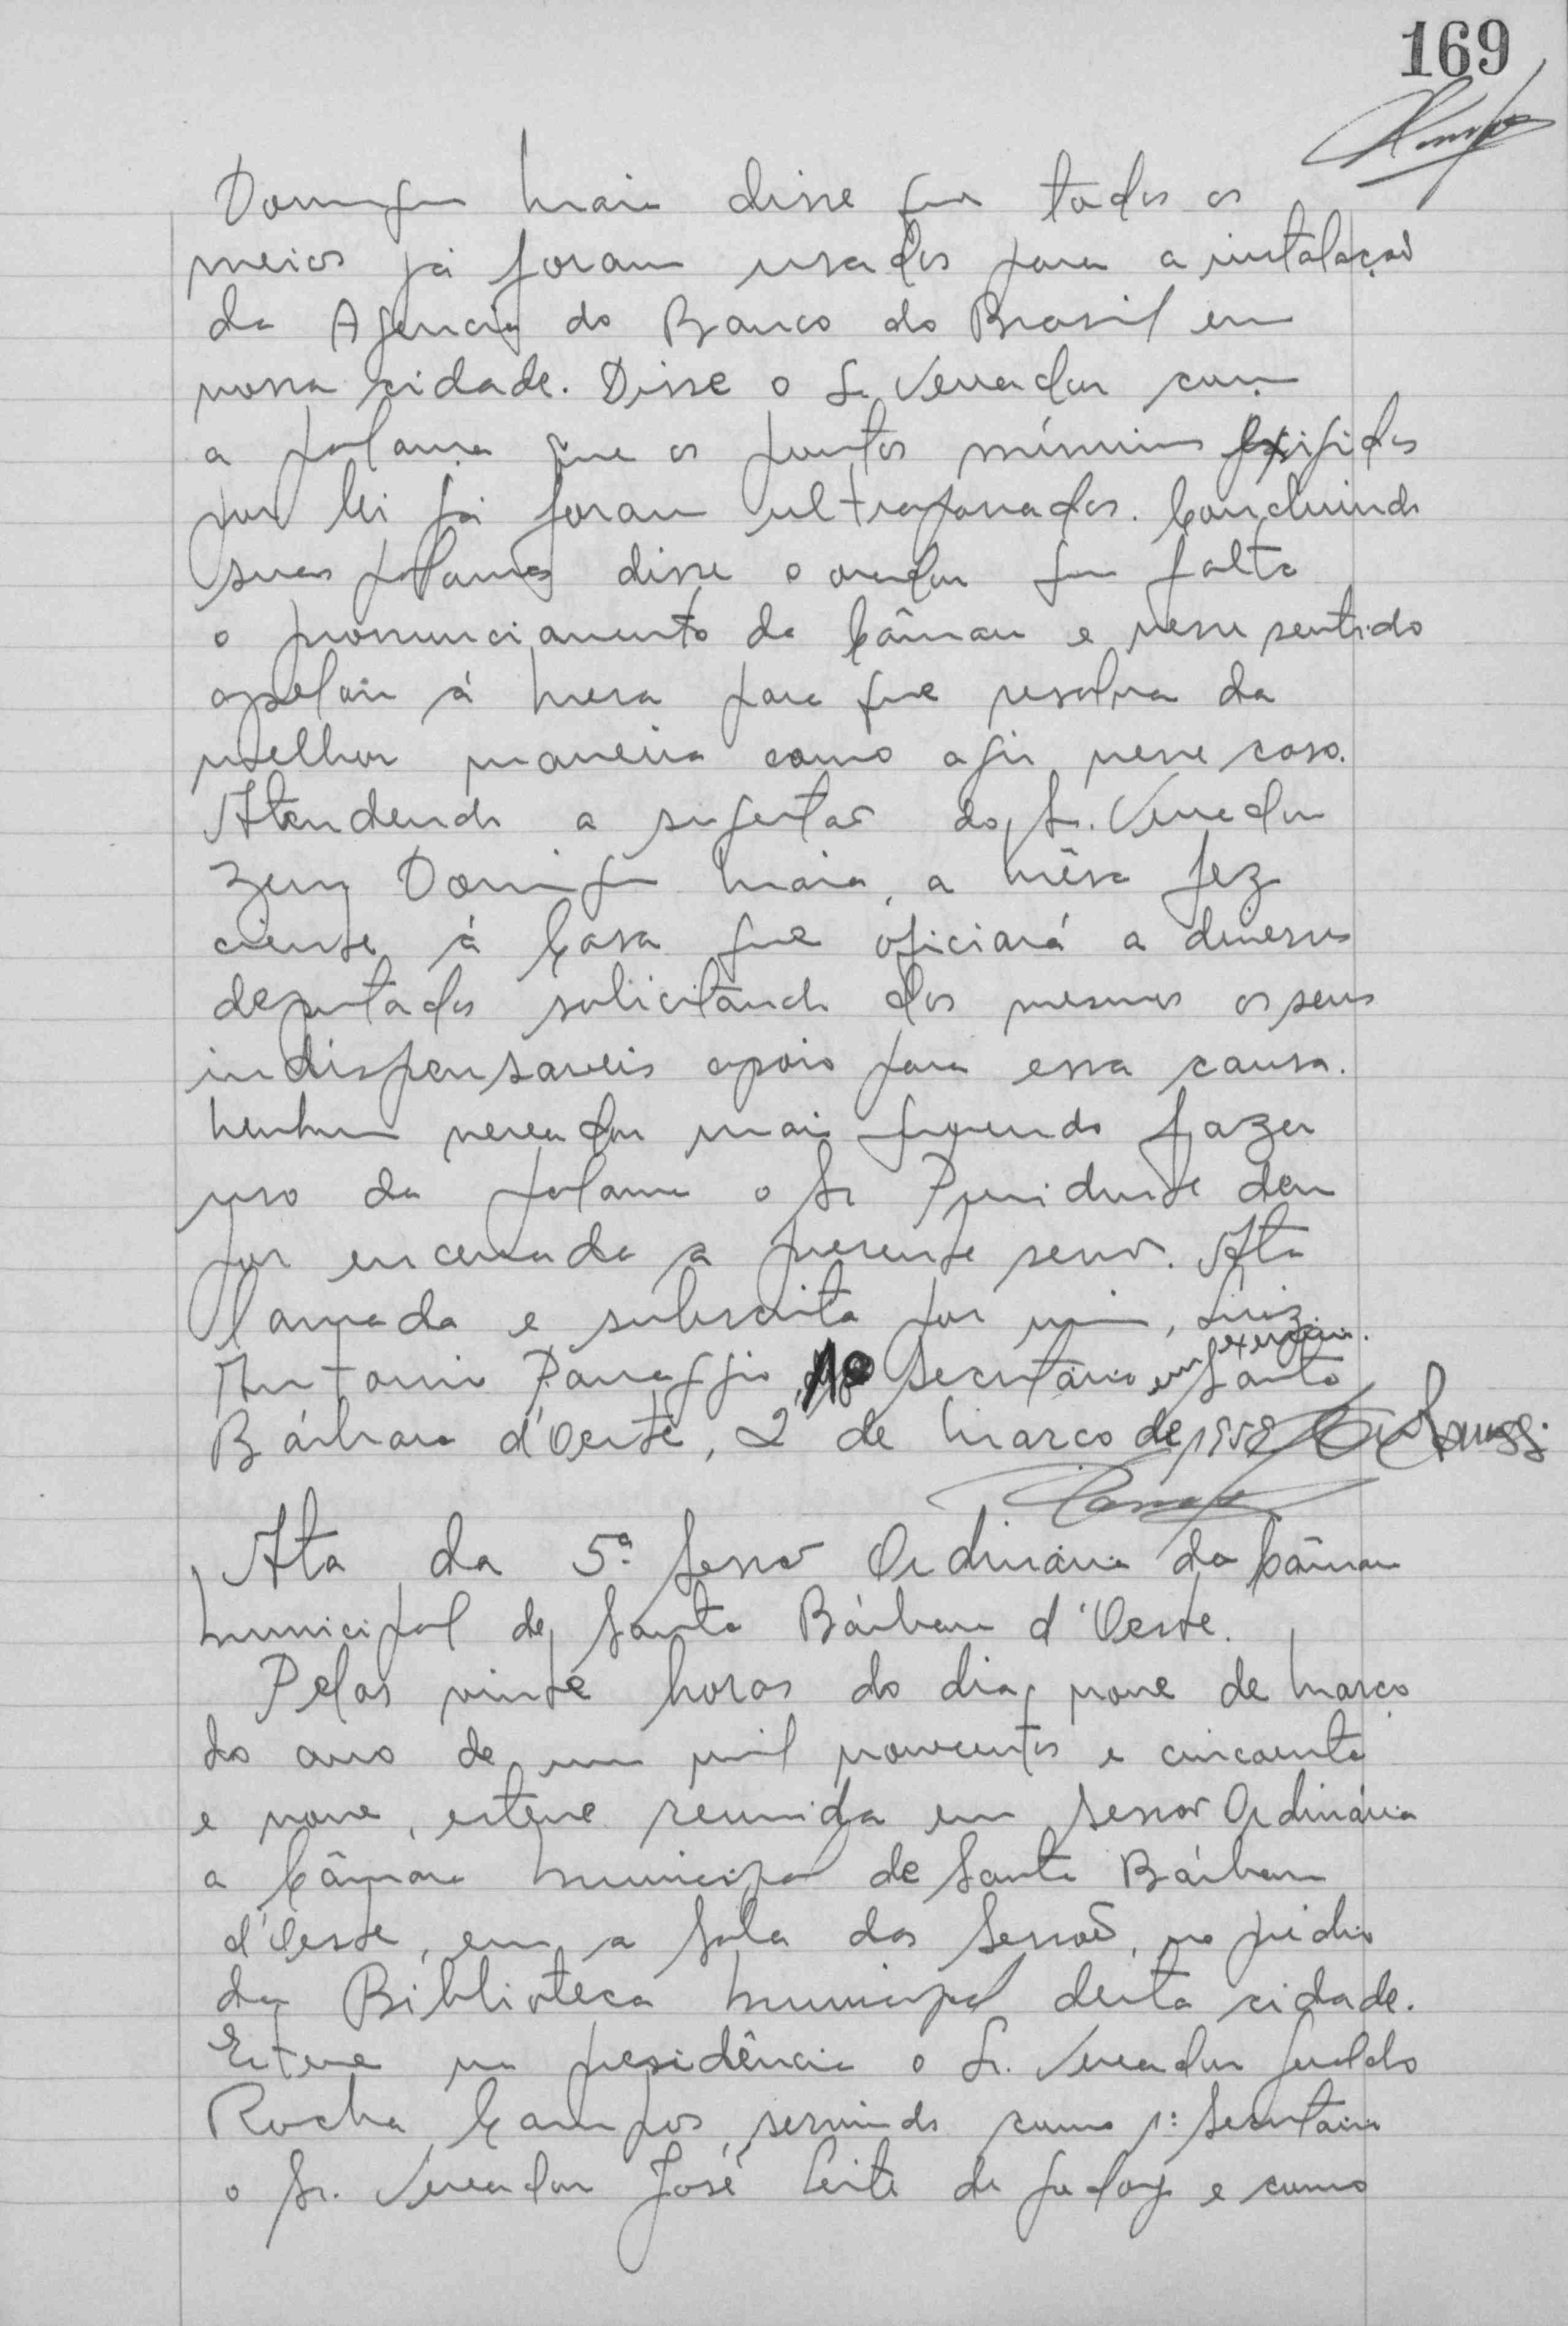 169
Domingos Maia disse que todos os
meios já foram usados para a instalação
da Agencia do Banco do Brasil em
nossa cidade. Disse o Sr. Vereador com
a palavra que os pontos mínimos exigidos
por lei já foram ultrapassados. Concluindo
suas palavras disse o orador que falta
o pronunciamento da Câmara e nesse sentido
apelava á mesa para que resolva da
melhor maneira como agir nesse caso.
Atendendo a sugestão do Sr. Vereador
Zeny Domingos Maia, a mêsa fez
ciente á Casa que oficiará a diversos
deputados solicitando dos mesmos os seus
indispensaveis apoio para essa causa.
Nenhum vereador mais querendo fazer
uso da palavra o Sr Presidente deu
por encerrada a presente sessão. Ata
lavrada e subscrita por mim, Luiz
Antonio Panaggio, 1º Secretário em exercício. Santa
Bárbara d'Oeste, 2 de Março de 1959
Ata da 5ª Sessão Ordinária da Câmara
Municipal de Santa Bárbara d'Oeste.
Pelas vinte horas do dia nove de Março
do ano de um mil novecentos e cincoenta
e nove, esteve reunida em sessão Ordinária
a Câmara Municipal de Santa Bárbara
d'Oeste, em a Sala das Sessões, no prédio
da Biblioteca Municipal desta cidade.
Esteve na presidência o Sr. Vereador Geraldo
Rocha Campos, servindo como 1º Secretário
o Sr. Vereador José Leite de Godoy e como